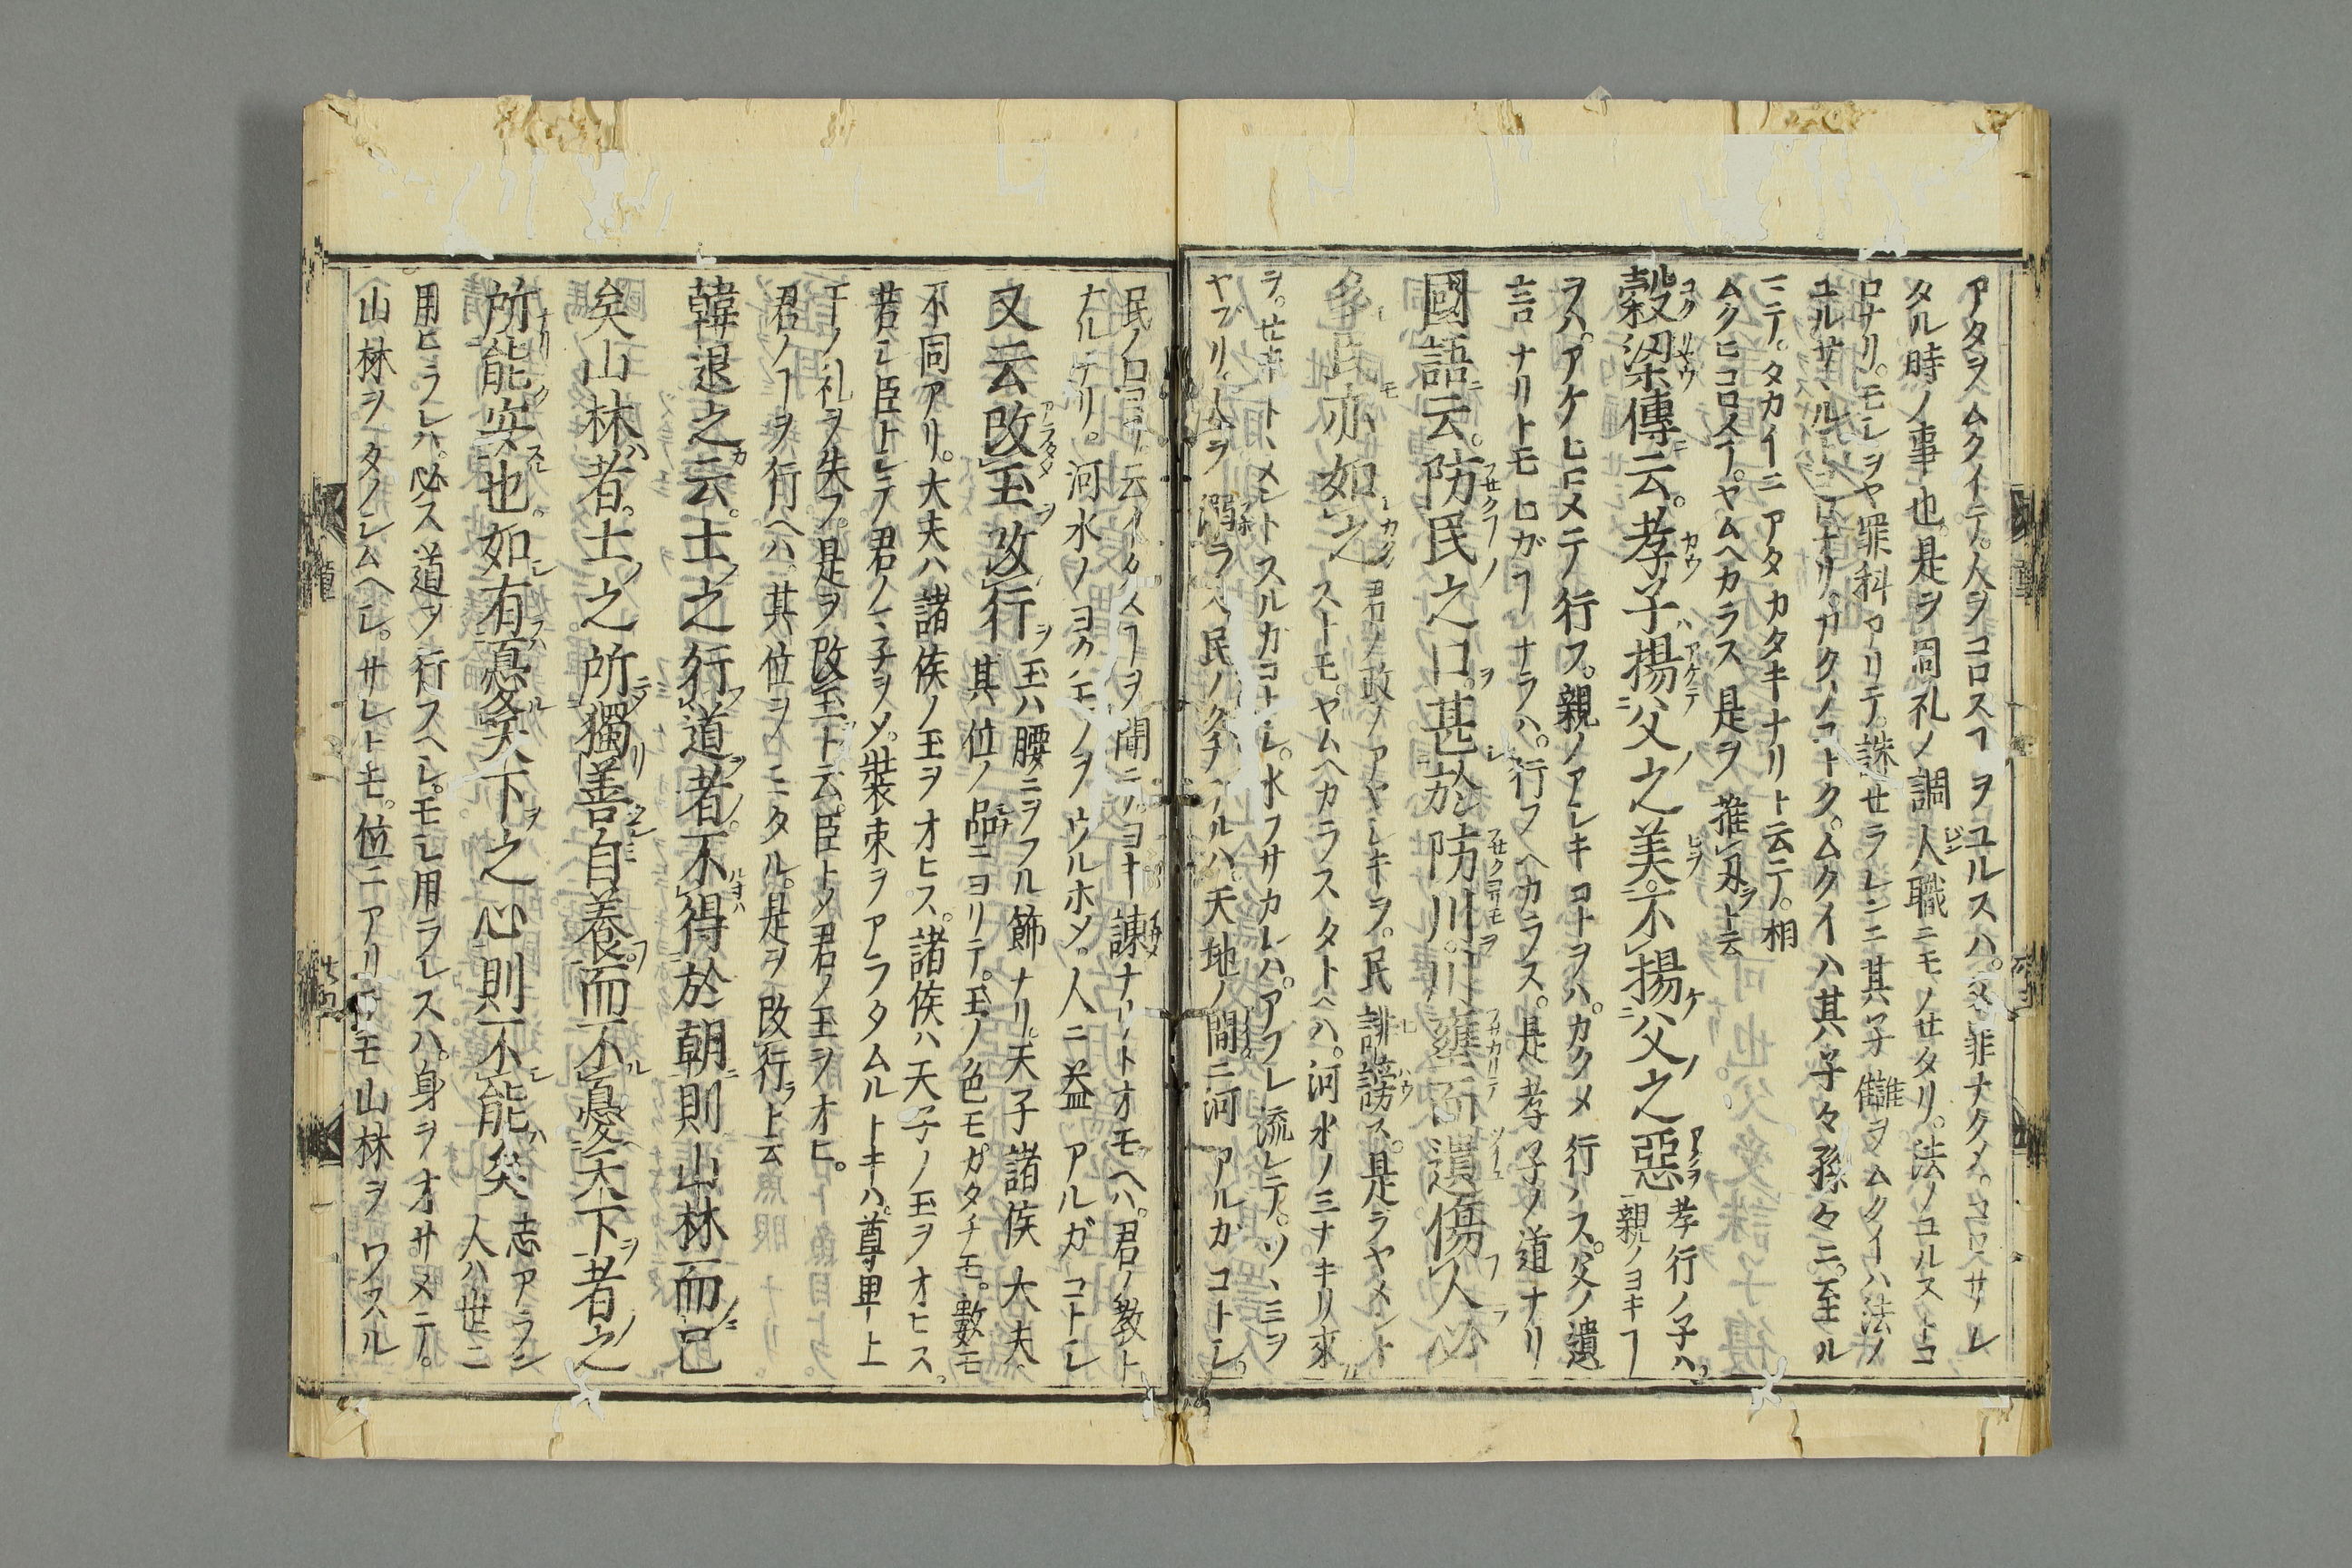 アタヲムクイテ。人ヲコロスヿヲユルスハ。父罪ナクメ。コロサレ
タル時ノ事也。是ヲ周礼ノ調人職ニモノせタリ。法ノユルストコ
ロナリ。モシヲヤ罪科アリテ。誅せラレンニ其子讎ヲムクイハ法ノ
ユルサヽルトコロナリ。カクノコトク。ムクイハ其子々孫々ニ。至ル
マテ。タカイニアタカタキナリト云テ。相
ムクヒコロメテ。ヤムヘカラス是ヲ推刄ト云
穀梁傳云。孝子揚父之美。不揚父之惡 孝行ノ子ハ。
親ノヨキヿ
ヲハ。アケヒロメテ行フ。親ノアシキコトヲハ。カクメ行ハス。父ノ遺
言ナリトモヒガヿナラハ。行フヘカラス。是孝子ノ道ナリ
國語云。防民之口。甚於防川。川壅而潰傷人必
多民亦如之 君ノ政ノアヤシキヲ。民誹謗ス。是ヲヤメント
ストモ。ヤムヘカラスタトヘハ。河水ノミナキリ來ル
ヲ。せキトヽメントスルガコトシ。水フサカレハ。アフレ流レテ。ツヽミヲ
ヤブリ。人ヲ溺ラス民ノ久チアルハ。天地ノ間ニ河アルガコトシ。
民ノ口ヨリ云イタスヿヲ聞ニ。ヨキ諌ナリトオモヘハ。君ノ教ト
ナルテリ。河水ノヨクモノヲウルホメ。人ニ益アルガコトシ
又云改玉改行 玉ハ腰ニヲフル飾ナリ。天子諸侯大夫。
其位ノ品ニヨリテ。玉ノ色モ。カタチモ。數モ
不同アリ。大夫ハ諸侯ノ玉ヲオヒス。諸侯ハ天子ノ玉ヲオヒス。
若シ臣トシテ君ノマ子ヲソ。裝束ヲアラタムルトキハ。尊卑上
下ノ礼ヲ失フ。是ヲ改玉ト云。臣トメ君ノ玉ヲオヒ。
君ノヿヲ行ヘハ。其位ヲコニタル。是ヲ改行ト云
韓退之云。士之行道者。不得於朝則山林而已
矣山林者。士之所獨善自養。而不憂天下者之
所能安也。如有憂天下之心則不能矣 志アラン
人ハ世ニ
用ヒラレハ。必ス道ヲ行スヘシ。モシ用ラレスハ。身ヲオサメテ。
山林ヲタノシムヘシ。サレトモ。位ニアリテモ山林ヲワスル